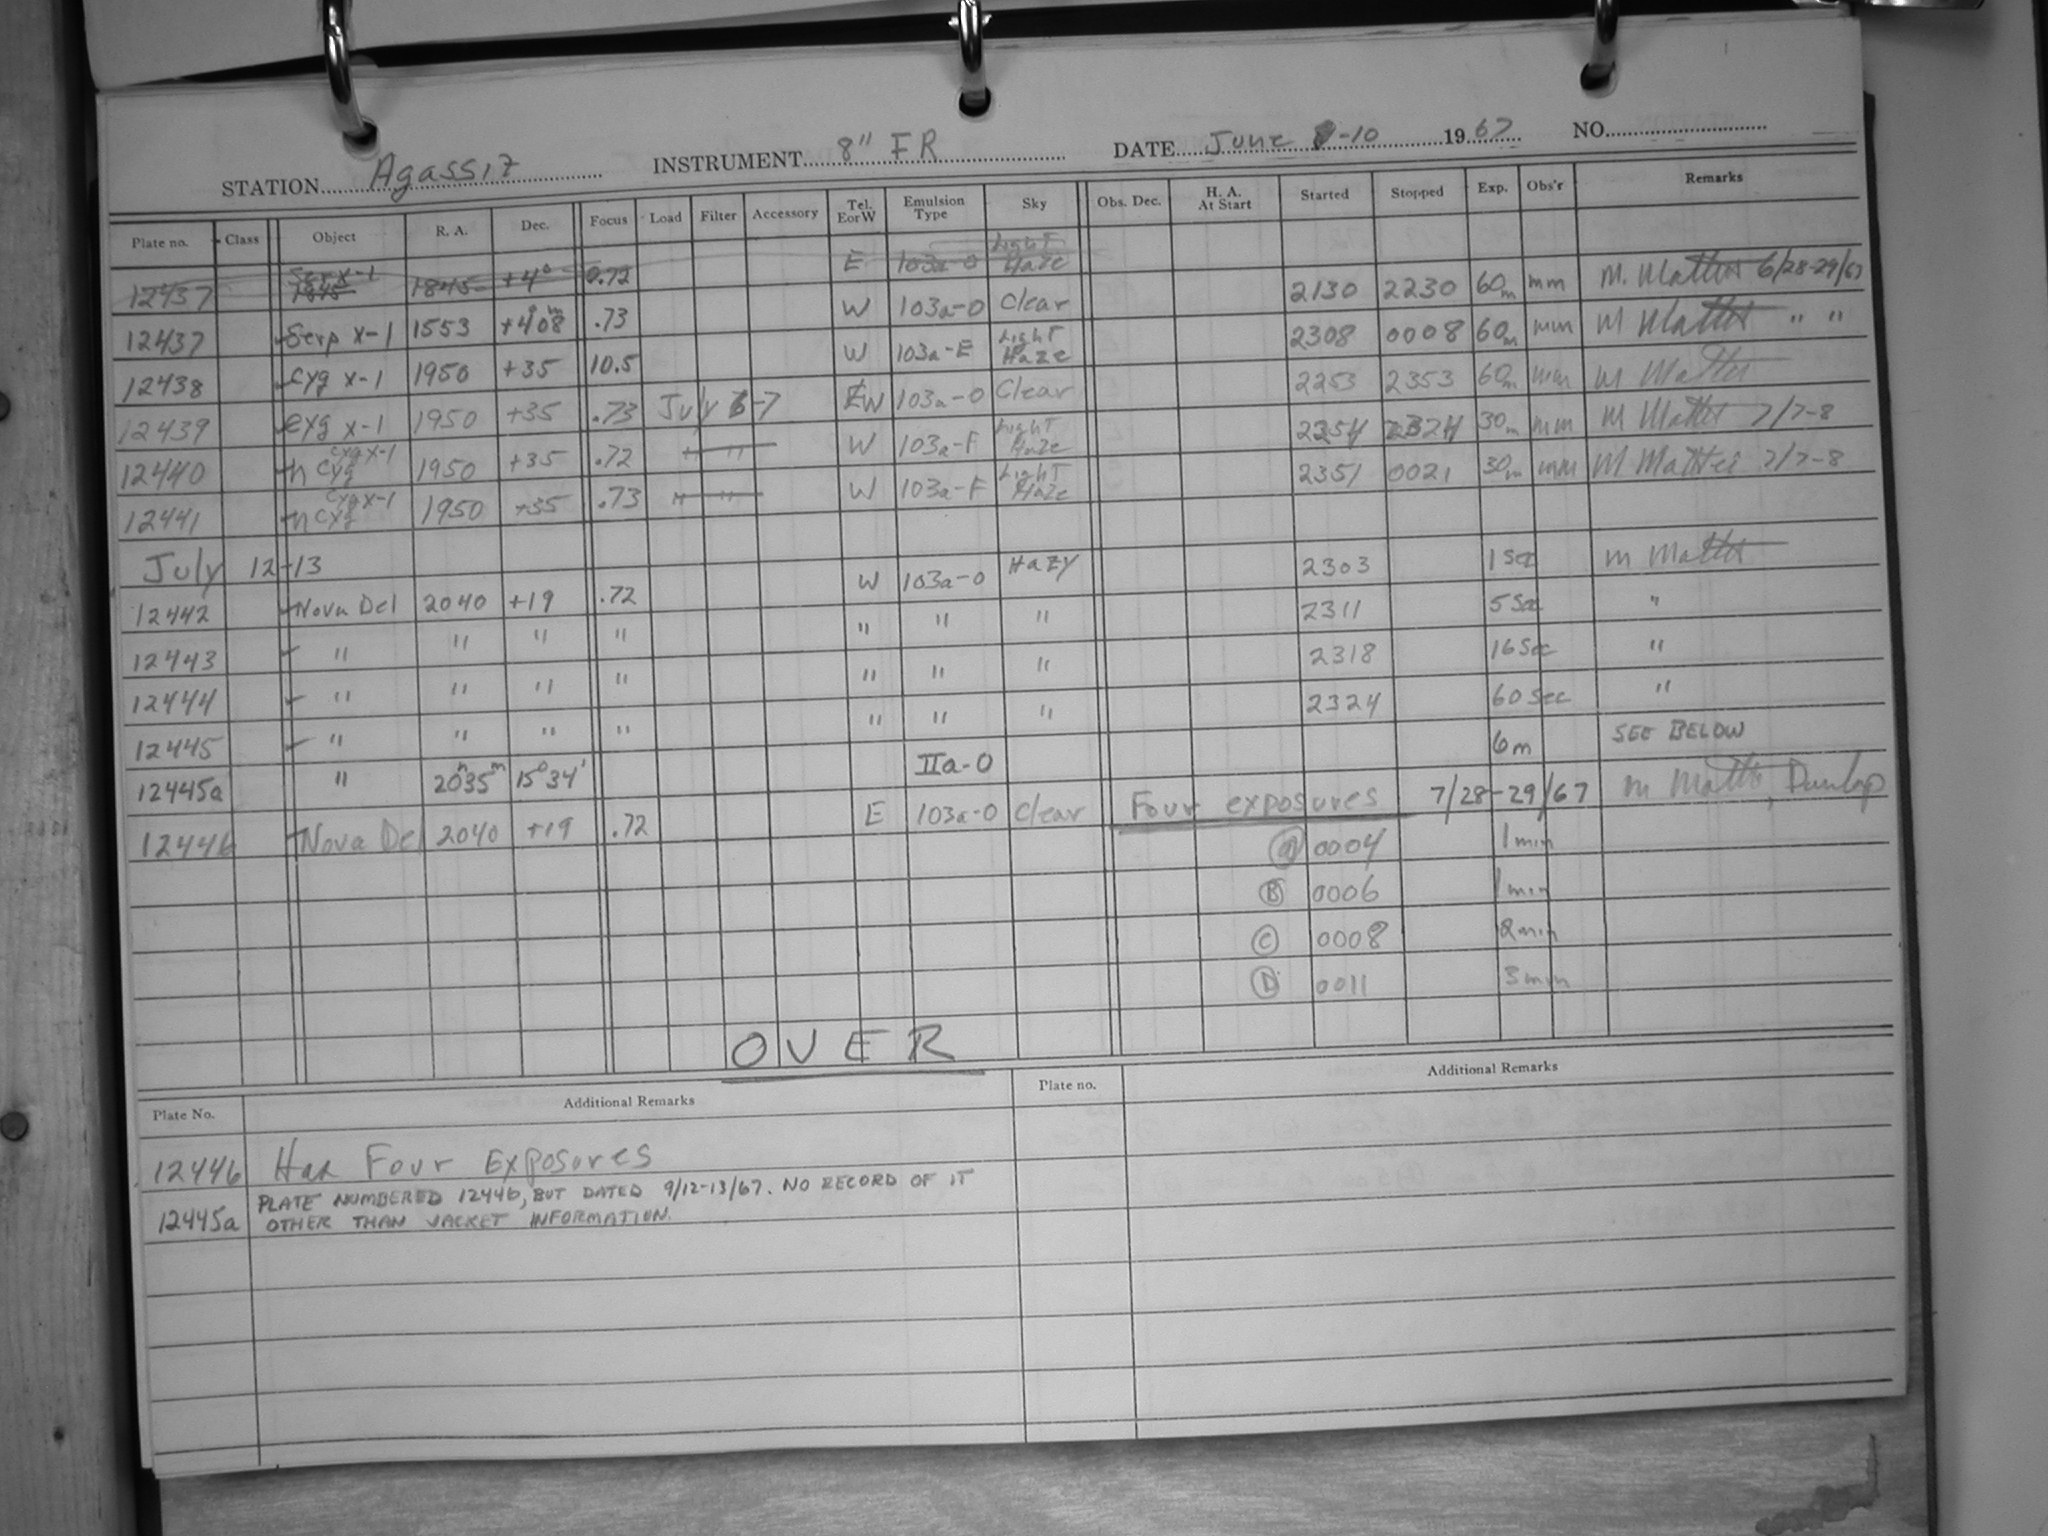 STATION Agassiz INSTRUMENT 8" FR DATE June 8-10 1967 NO.
Plate no. Class Object R. A. Dec. Focus Load Filter Accessory Tel. E or W Emulsion Type Sky Obs. Dec. H. A. At Start Started Stopped Exp. Obs'r Remarks
12437 Ser x-1 1845 1845 +4° 0.72 E 103a-0 Light Haze
12437 Serp x-1 1553 +4°08m .73 W 103a-0 Clear 2130 2230 60m mm M. Mattei 6/28-29/67
12438 Cyg x-1 1950 +35 10.5 W 103a-E Light Haze 2308 0008 60m mm M Mattei " "
12439 Cyg x-1 1950 +35 .73 July 6-7 EW 103a-0 Clear 2253 2353 60m mm M Mattei
12440 η Cyg Cyg x-1 1950 +35 .72 " " W 103a-F Light Haze 2254 2324 30m mm M Mattei 7/7-8
12441 η Cyg Cyg x-1 1950 +35 .73 " " W 103a-F Light Haze 2351 0021 30m mm M Mattei 7/7-8
July 12-13
12442 Nova Del 2040 +19 .72 W 103a-0 Hazy 2303 1 Sec M Mattei
12443 " " " " " " " 2311 5 Sec "
12444 " " " " " " " 2318 16 Sec "
12445 " " " " " " " 2324 60 Sec "
12445a " 20h35m 15°34' IIa-0 6m SEE BELOW
12446 Nova Del 2040 +19 .72 E 103a-0 Clear Four exposures 7/28-29/67 M Mattei, Dunlap
A 0004 1 min
B 0006 1 min
C 0008 2 min
D 0011 3 min
OVER
Plate No. Additional Remarks Plate no. Additional Remarks
12446 Has Four Exposures
12445a PLATE NUMBERED 12446, BUT DATED 9/12-13/67. NO RECORD OF IT
OTHER THAN JACKET INFORMATION.